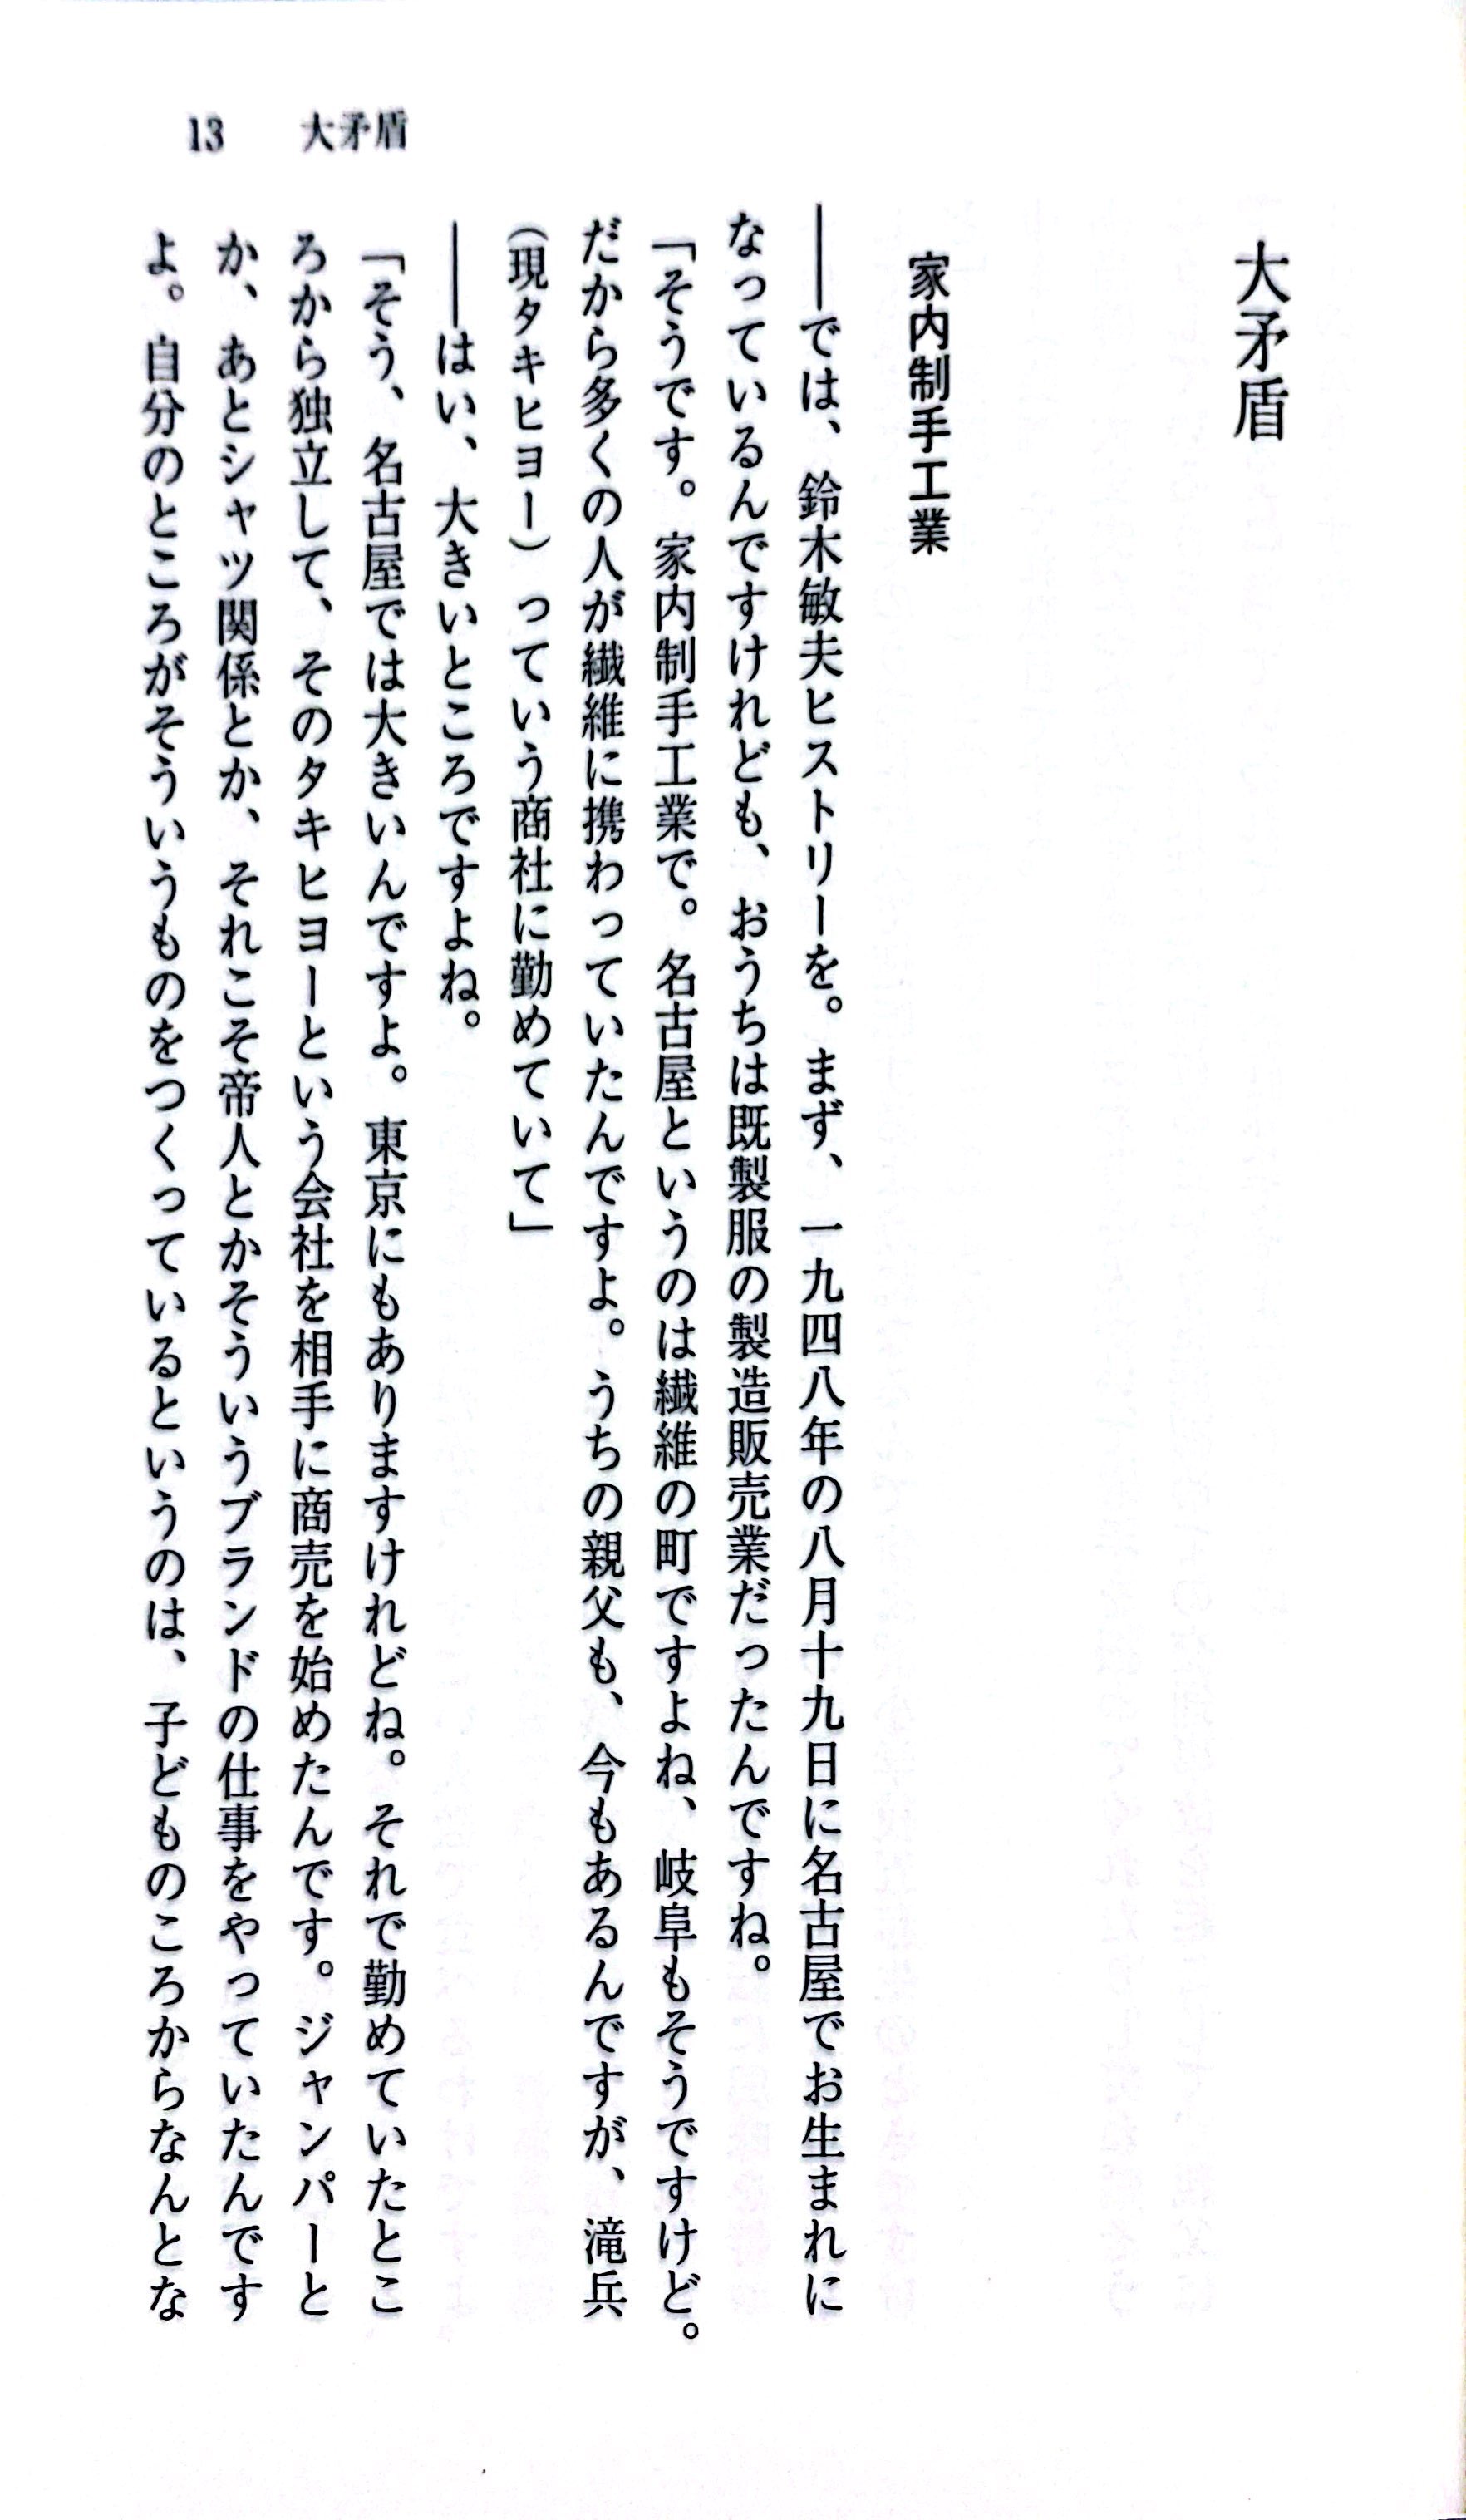 大矛盾
家内制手工業
――では、鈴木敏夫ヒストリーを。まず、一九四八年の八月十九日に名古屋でお生まれに
なっているんですけれども、おうちは既製服の製造販売業だったんですね。
「そうです。家内制手工業で。名古屋というのは繊維の町ですよね、岐阜もそうですけど。
だから多くの人が繊維に携わっていたんですよ。うちの親父も、今もあるんですが、滝兵
（現タキヒヨー）っていう商社に勤めていて」
――はい、大きいところですよね。
「そう、名古屋では大きいんですよ。東京にもありますけれどね。それで勤めていたとこ
ろから独立して、そのタキヒヨーという会社を相手に商売を始めたんです。ジャンパーと
か、あとシャツ関係とか、それこそ帝人とかそういうブランドの仕事をやっていたんです
よ。自分のところがそういうものをつくっているというのは、子どものころからなんとな
13 大矛盾